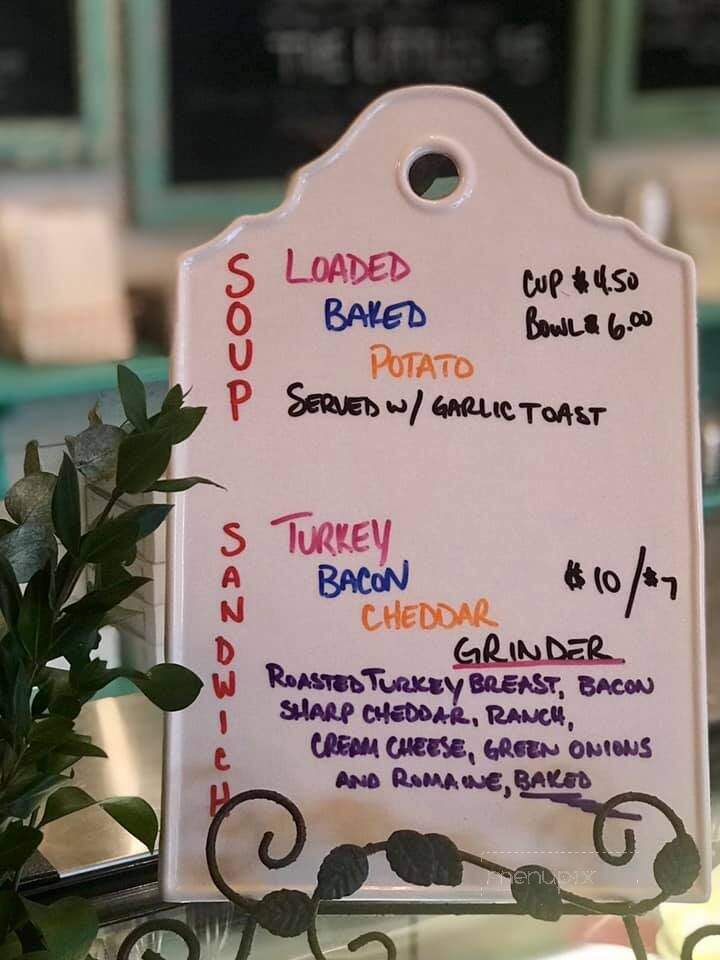 SOUP
LOADED
BAKED
POTATO
CUP $4.50
BOWL $ 6.00
SERVED W/ GARLIC TOAST
SANDWICH
TURKEY
BACON
CHEDDAR
$10/$7
GRINDER
ROASTED TURKEY BREAST, BACON
SHARP CHEDDAR, RANCH,
CREAM CHEESE, GREEN ONIONS
AND ROMAINE, BAKED
menupix